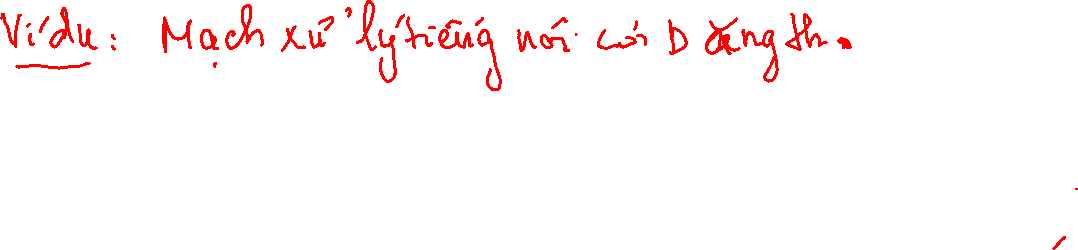 Ví dụ: Mạch xử lý tiếng nói với D ăng th.